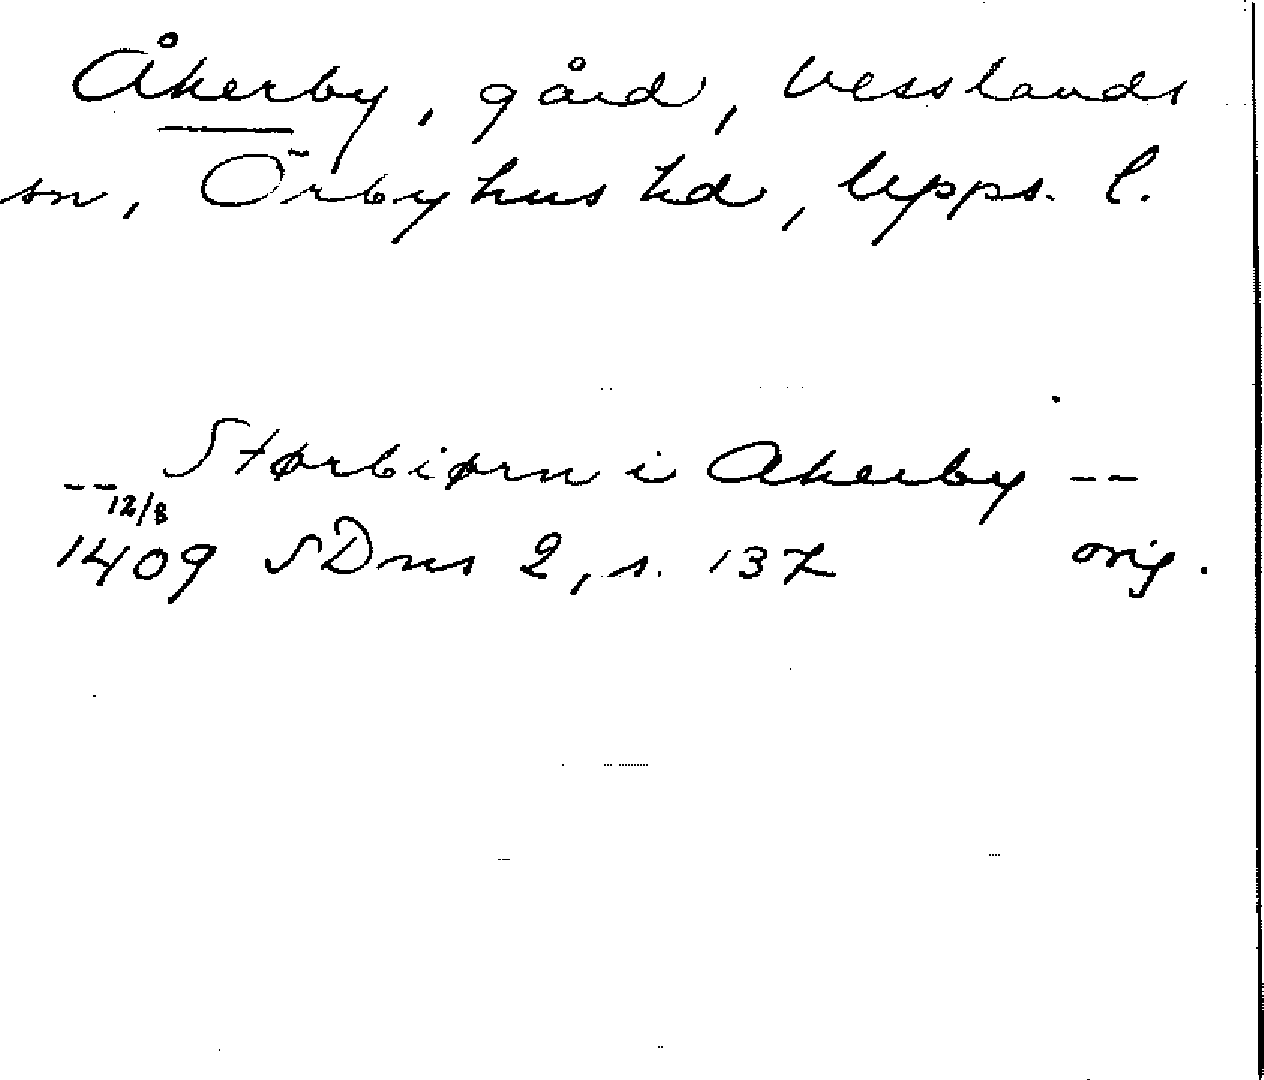 Åkerby, gård, Vesslands
sn, Örbyhus hd, Upps. l.
-- Størbiørn i Akerby --
12/8
1409 SDns 2, s. 137 orig.